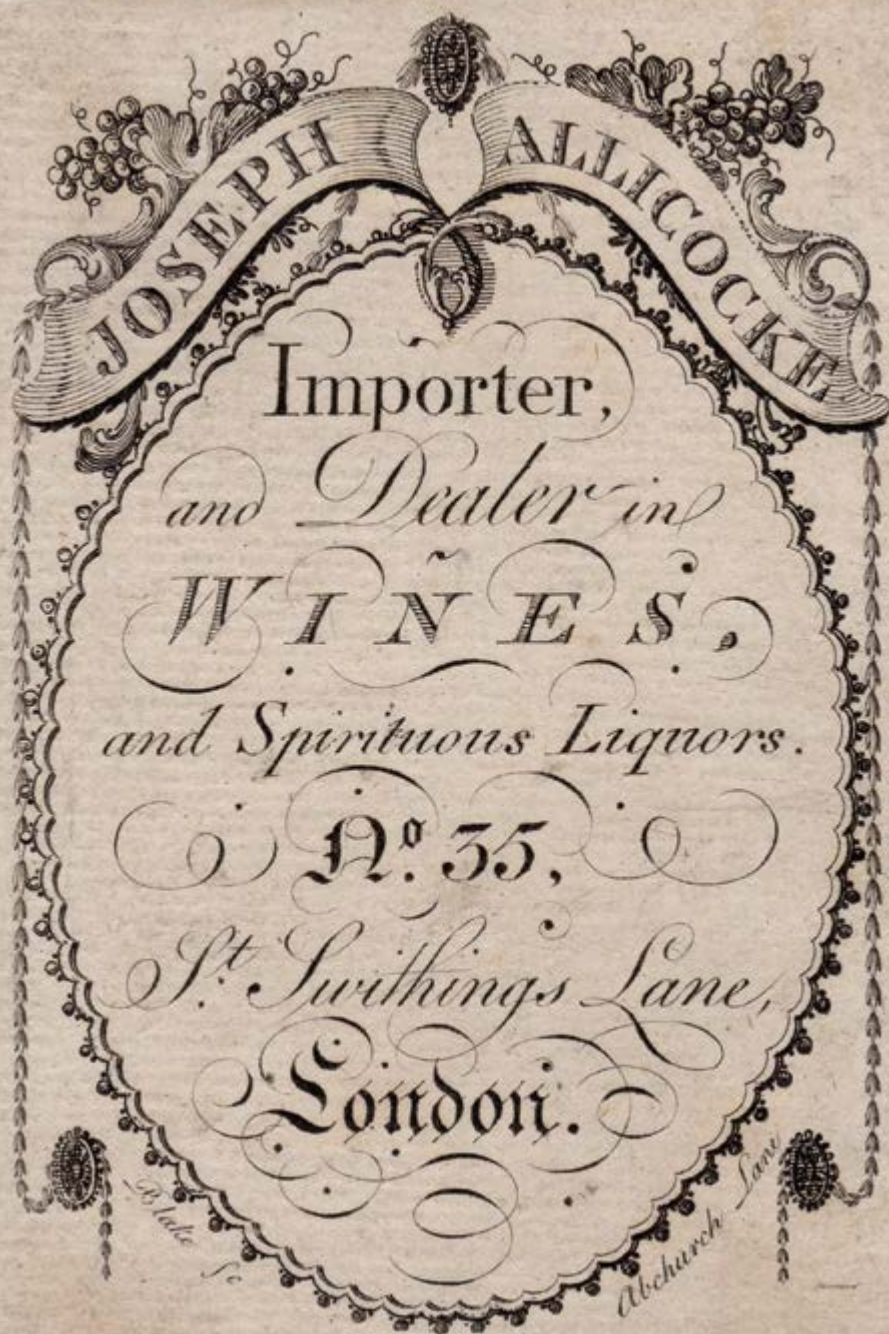 JOSEPH ALLICOCKE
Importer,
and Dealer in
WINES,
and Spirituous Liquors.
No. 35,
St. Swithings Lane,
London.
Blake sc
Abchurch Lane